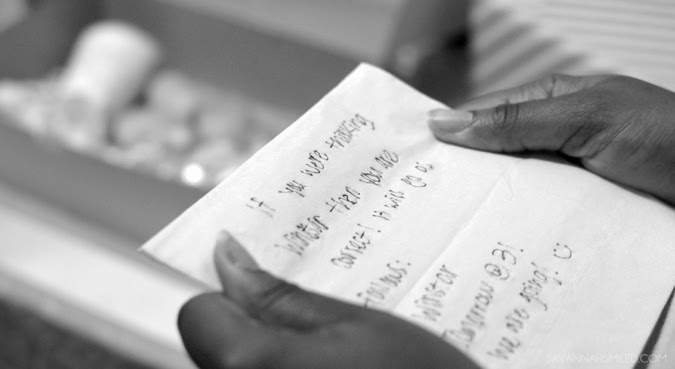 If you were thinking
Winstar then you are
correct! It will go as
follows:
Winstar
Tomorrow @ 3!
We are going! :)
SAVANNAHSMILED.COM